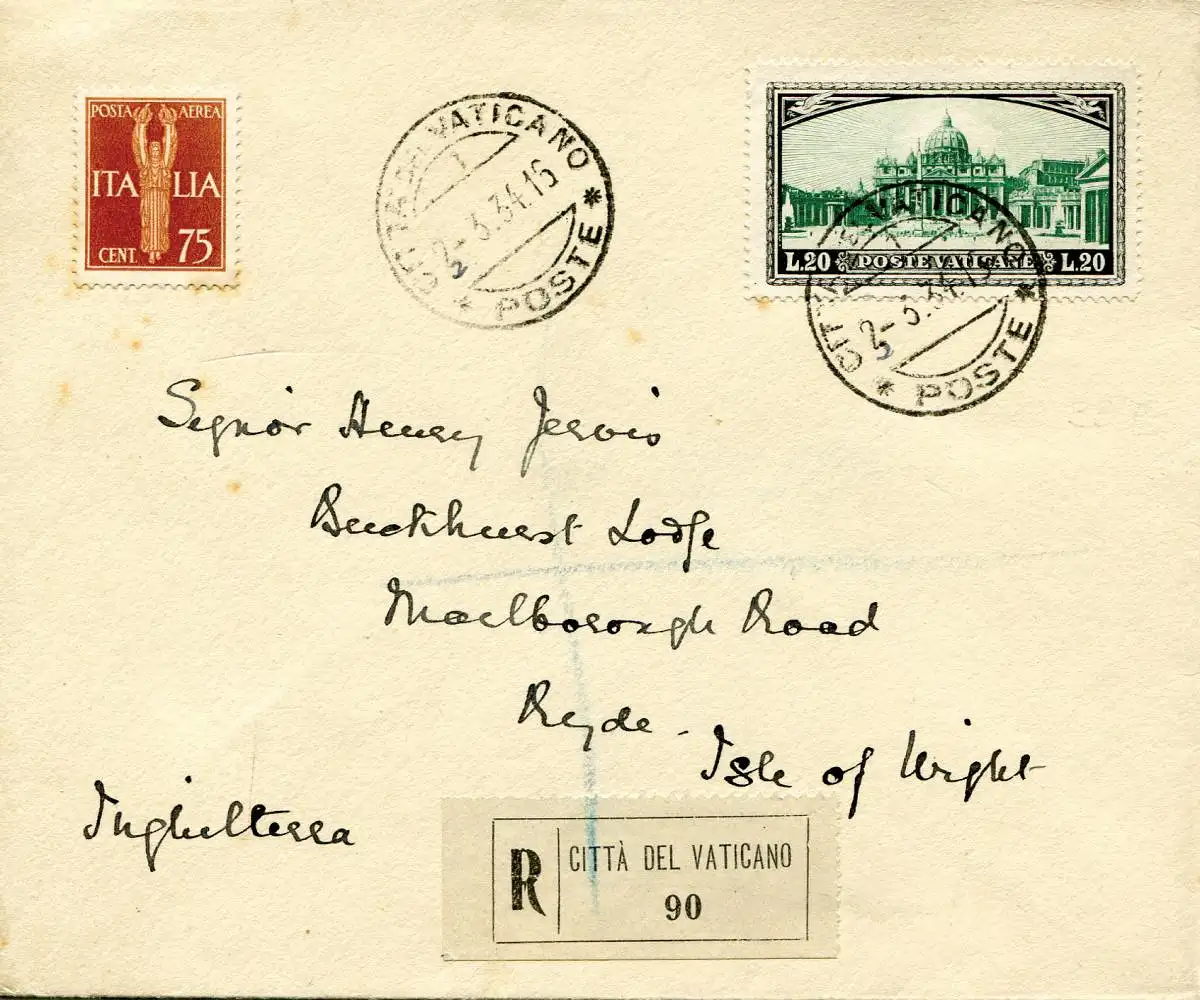 POSTA AEREA
ITALIA
CENT. 75
CITTÀ DEL VATICANO
2-3.34.15
* POSTE *
L.20 POSTE VATICANE L.20
CITTÀ DEL VATICANO
2-3.34.15
* POSTE *
Signor Henry Jervis
Buckhurst Lodge
Marlborough Road
Ryde -
Isle of Wight
Inghilterra
R
CITTÀ DEL VATICANO
90